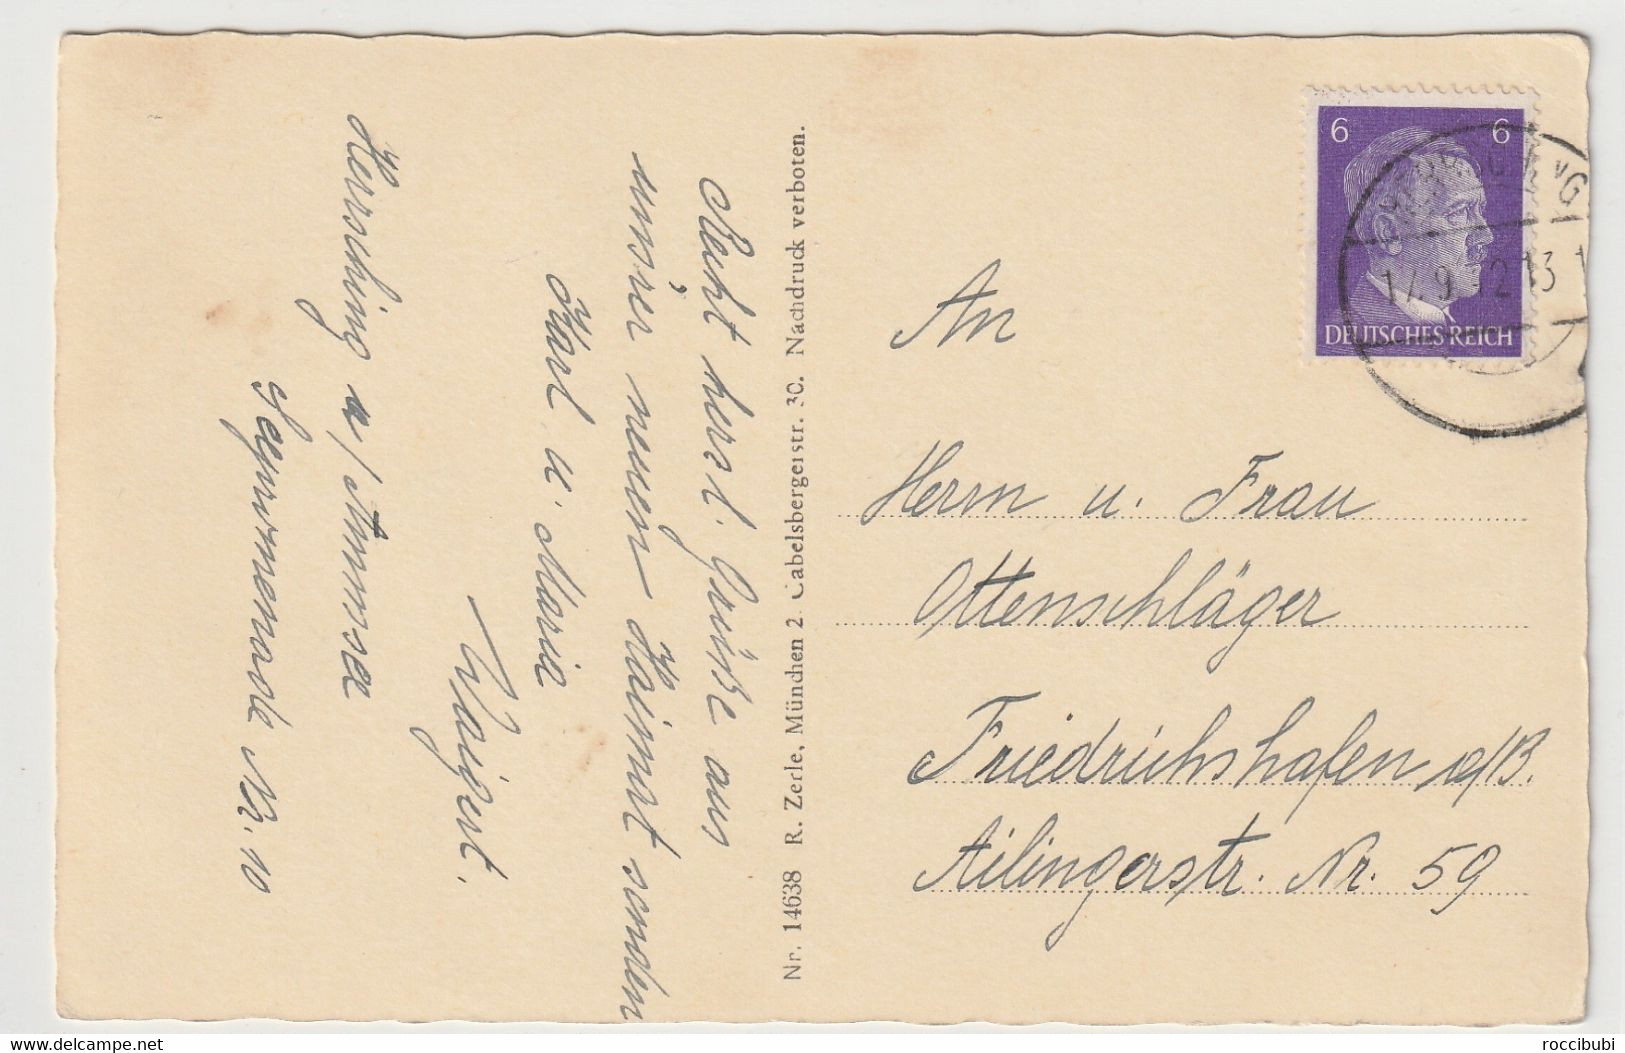 Recht herzl. Grüße aus
unsrer neuen Heimat senden
Karl u. Maria
Waigert.
Herrsching a/Ammersee
Seepromenade Nr. 10
Nr. 14638 R. Zerle, München 2. Gabelsbergerstr. 30. Nachdruck verboten.
6 6
DEUTSCHES REICH
17.9.42.13
An
Herrn u. Frau
Ottenschläger
Friedrichshafen a/B.
Ailingerstr. Nr. 59
delcampe.net
roccibubi